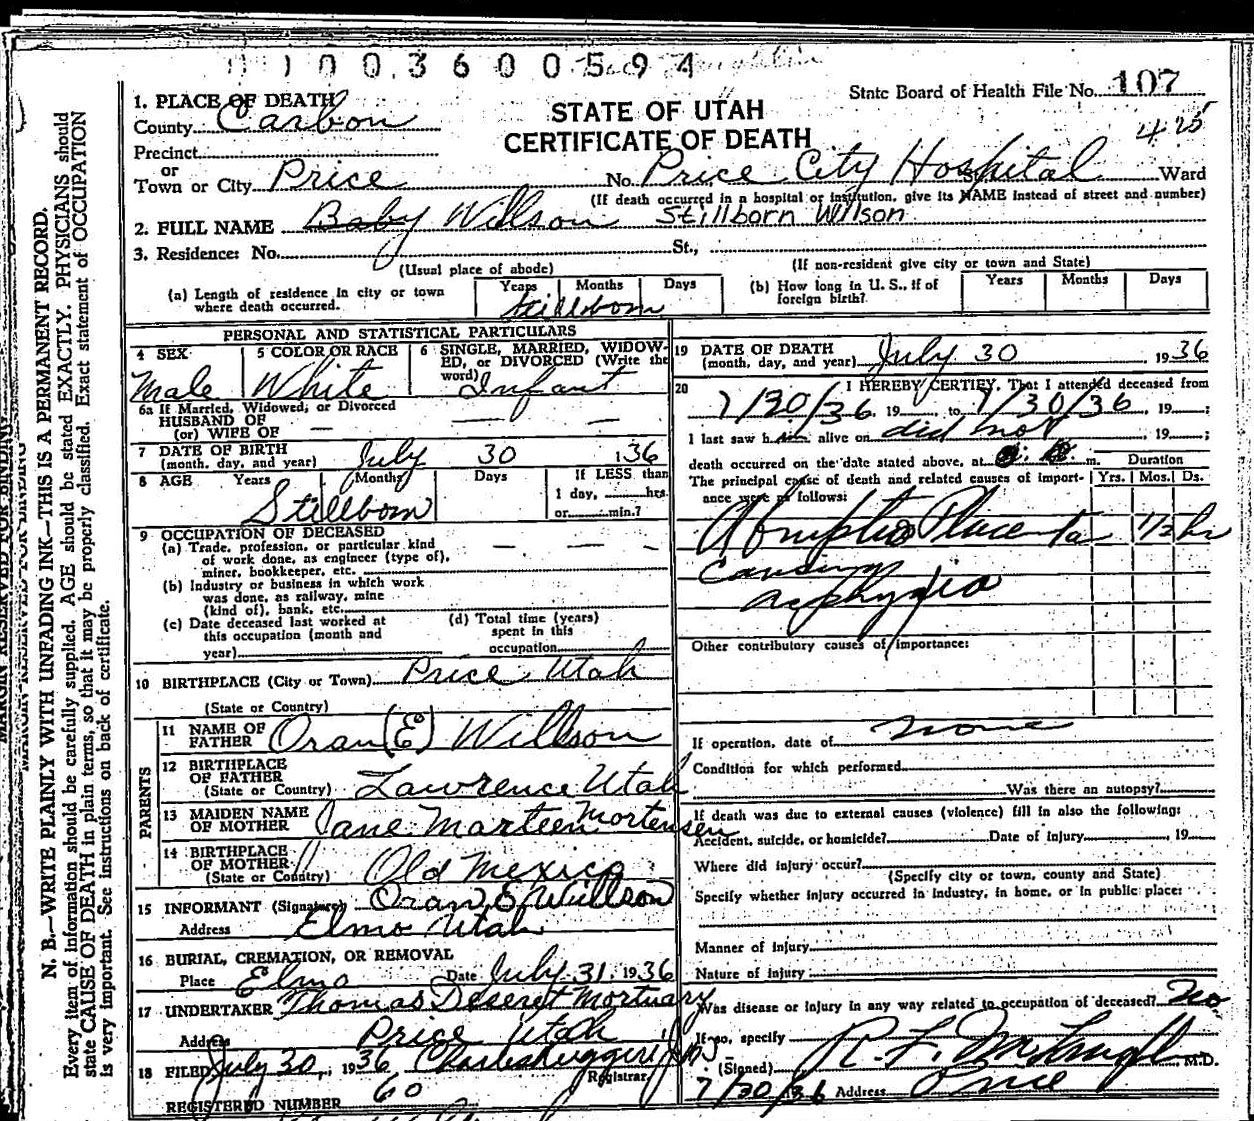 1003600594
State Board of Health File No. 107
1. PLACE OF DEATH
STATE OF UTAH
County Carbon
CERTIFICATE OF DEATH
425
Precinct
or
Town or City Price No. Price City Hospital St., Ward
(If death occurred in a hospital or institution, give its NAME instead of street and number)
2. FULL NAME Baby Willson Stillborn Willson
3. Residence: No. St.,
(Usual place of abode) (If non-resident give city or town and State)
(a) Length of residence in city or town where death occurred. Years Months Days Stillborn
(b) How long in U. S., if of foreign birth? Years Months Days
PERSONAL AND STATISTICAL PARTICULARS
4 SEX 5 COLOR OR RACE 6 SINGLE, MARRIED, WIDOW-
ED, or DIVORCED (Write the
word)
Male White Infant
6a If Married, Widowed, or Divorced
HUSBAND OF — — —
(or) WIFE OF
7 DATE OF BIRTH
(month, day, and year) July 30 136
8 AGE Years Months Days If LESS than
1 day, hrs.
Stillborn or min.?
9 OCCUPATION OF DECEASED
(a) Trade, profession, or particular kind — — —
of work done, as engineer (type of),
miner, bookkeeper, etc.
(b) Industry or business in which work
was done, as railway, mine
(kind of), bank, etc.
(c) Date deceased last worked at
this occupation (month and
year)
(d) Total time (years)
spent in this
occupation
10 BIRTHPLACE (City or Town) Price Utah
(State or Country)
PARENTS
11 NAME OF
FATHER Oran (E) Willson
12 BIRTHPLACE
OF FATHER
(State or Country) Lawrence Utah
13 MAIDEN NAME
OF MOTHER Jane Marteen Mortensen
14 BIRTHPLACE
OF MOTHER
(State or Country) Old Mexico
15 INFORMANT (Signature) Oran E Willson
Address Elmo Utah
16 BURIAL, CREMATION, OR REMOVAL
Place Elmo Date July 31, 1936
17 UNDERTAKER Thomas Deseret Mortuary
Address Price Utah
18 FILED July 30, 1936
Registrar.
REGISTERED NUMBER 60
19 DATE OF DEATH
(month, day, and year) July 30 1936
20 I HEREBY CERTIFY, That I attended deceased from
7/30/36, 19 to 7/30/36, 19 ;
I last saw him alive on did not, 19 ;
death occurred on the date stated above, at m. Duration
The principal cause of death and related causes of import-
ance were as follows: Yrs. Mos. Ds.
Abruptio Placenta 1/2 hr
causing
asphyxia
Other contributory causes of importance:
If operation, date of none
Condition for which performed
Was there an autopsy?
If death was due to external causes (violence) fill in also the following:
Accident, suicide, or homicide? Date of injury , 19
Where did injury occur?
(Specify city or town, county and State)
Specify whether injury occurred in industry, in home, or in public place:
Manner of Injury
Nature of Injury
Was disease or injury in any way related to occupation of deceased? No
If so, specify
(Signed) R. F. M.D.
7/30/36 Address Price
MARGIN RESERVED FOR BINDING
N. B.—WRITE PLAINLY WITH UNFADING INK—THIS IS A PERMANENT RECORD.
Every item of information should be carefully supplied. AGE should be stated EXACTLY. PHYSICIANS should
state CAUSE OF DEATH in plain terms, so that it may be properly classified. Exact statement of OCCUPATION
is very important. See instructions on back of certificate.